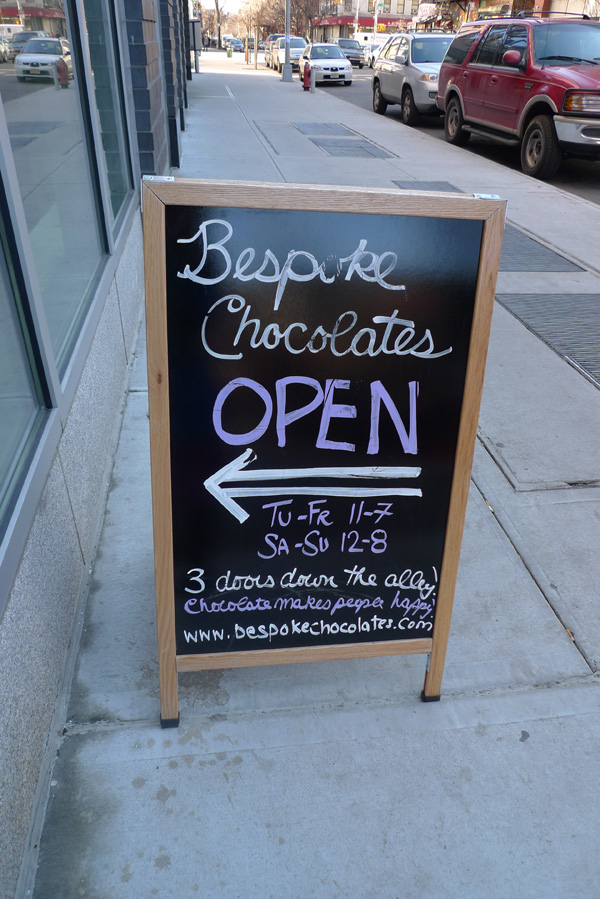 Bespoke
Chocolates
OPEN
Tu-Fr 11-7
Sa-Su 12-8
3 doors down the alley!
Chocolate makes people happy!
www.bespokechocolates.com